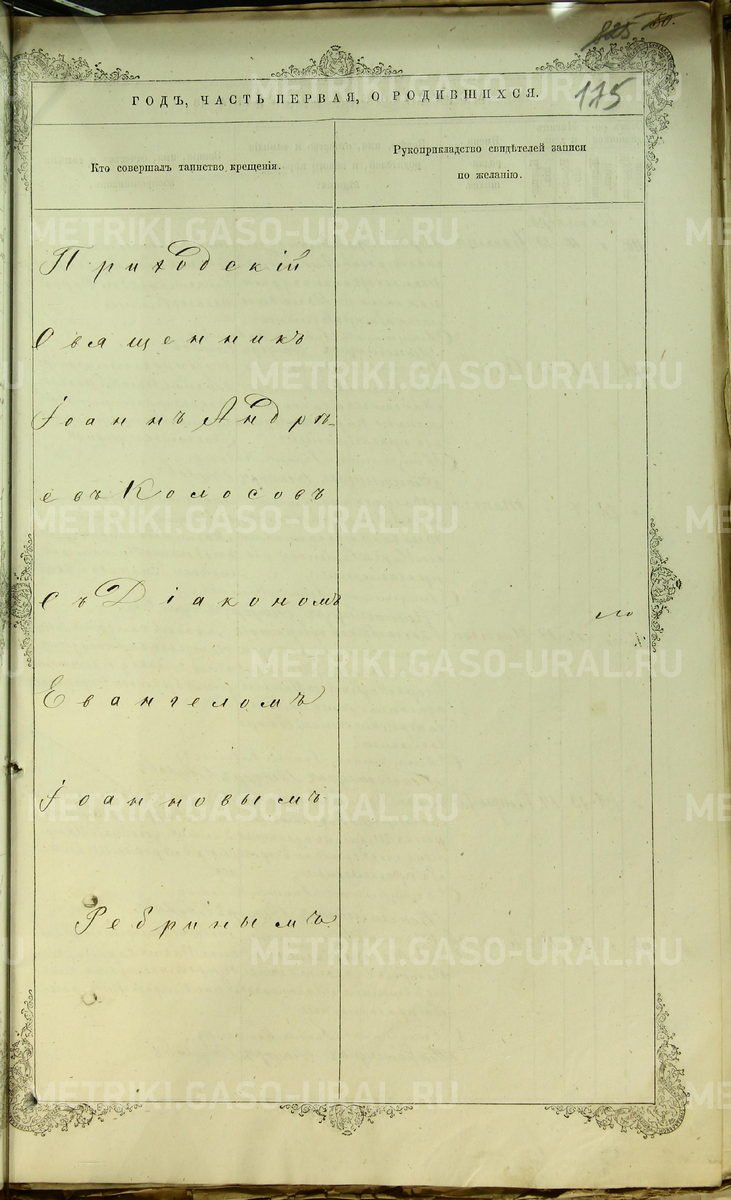 825 50.
175
ГОДЪ, ЧАСТЬ ПЕРВАЯ, О РОДИВШИХСЯ.
Кто совершалъ таинство крещенія.
Рукоприкладство свидѣтелей записи
по желанію.
Приходскій
Священникъ
Іоаннъ Андрѣ-
евъ Колосовъ
Съ Діакономъ
Евангеломъ
Іоанновымъ
Ребринымъ
METRIKI.GASO-URAL.RU